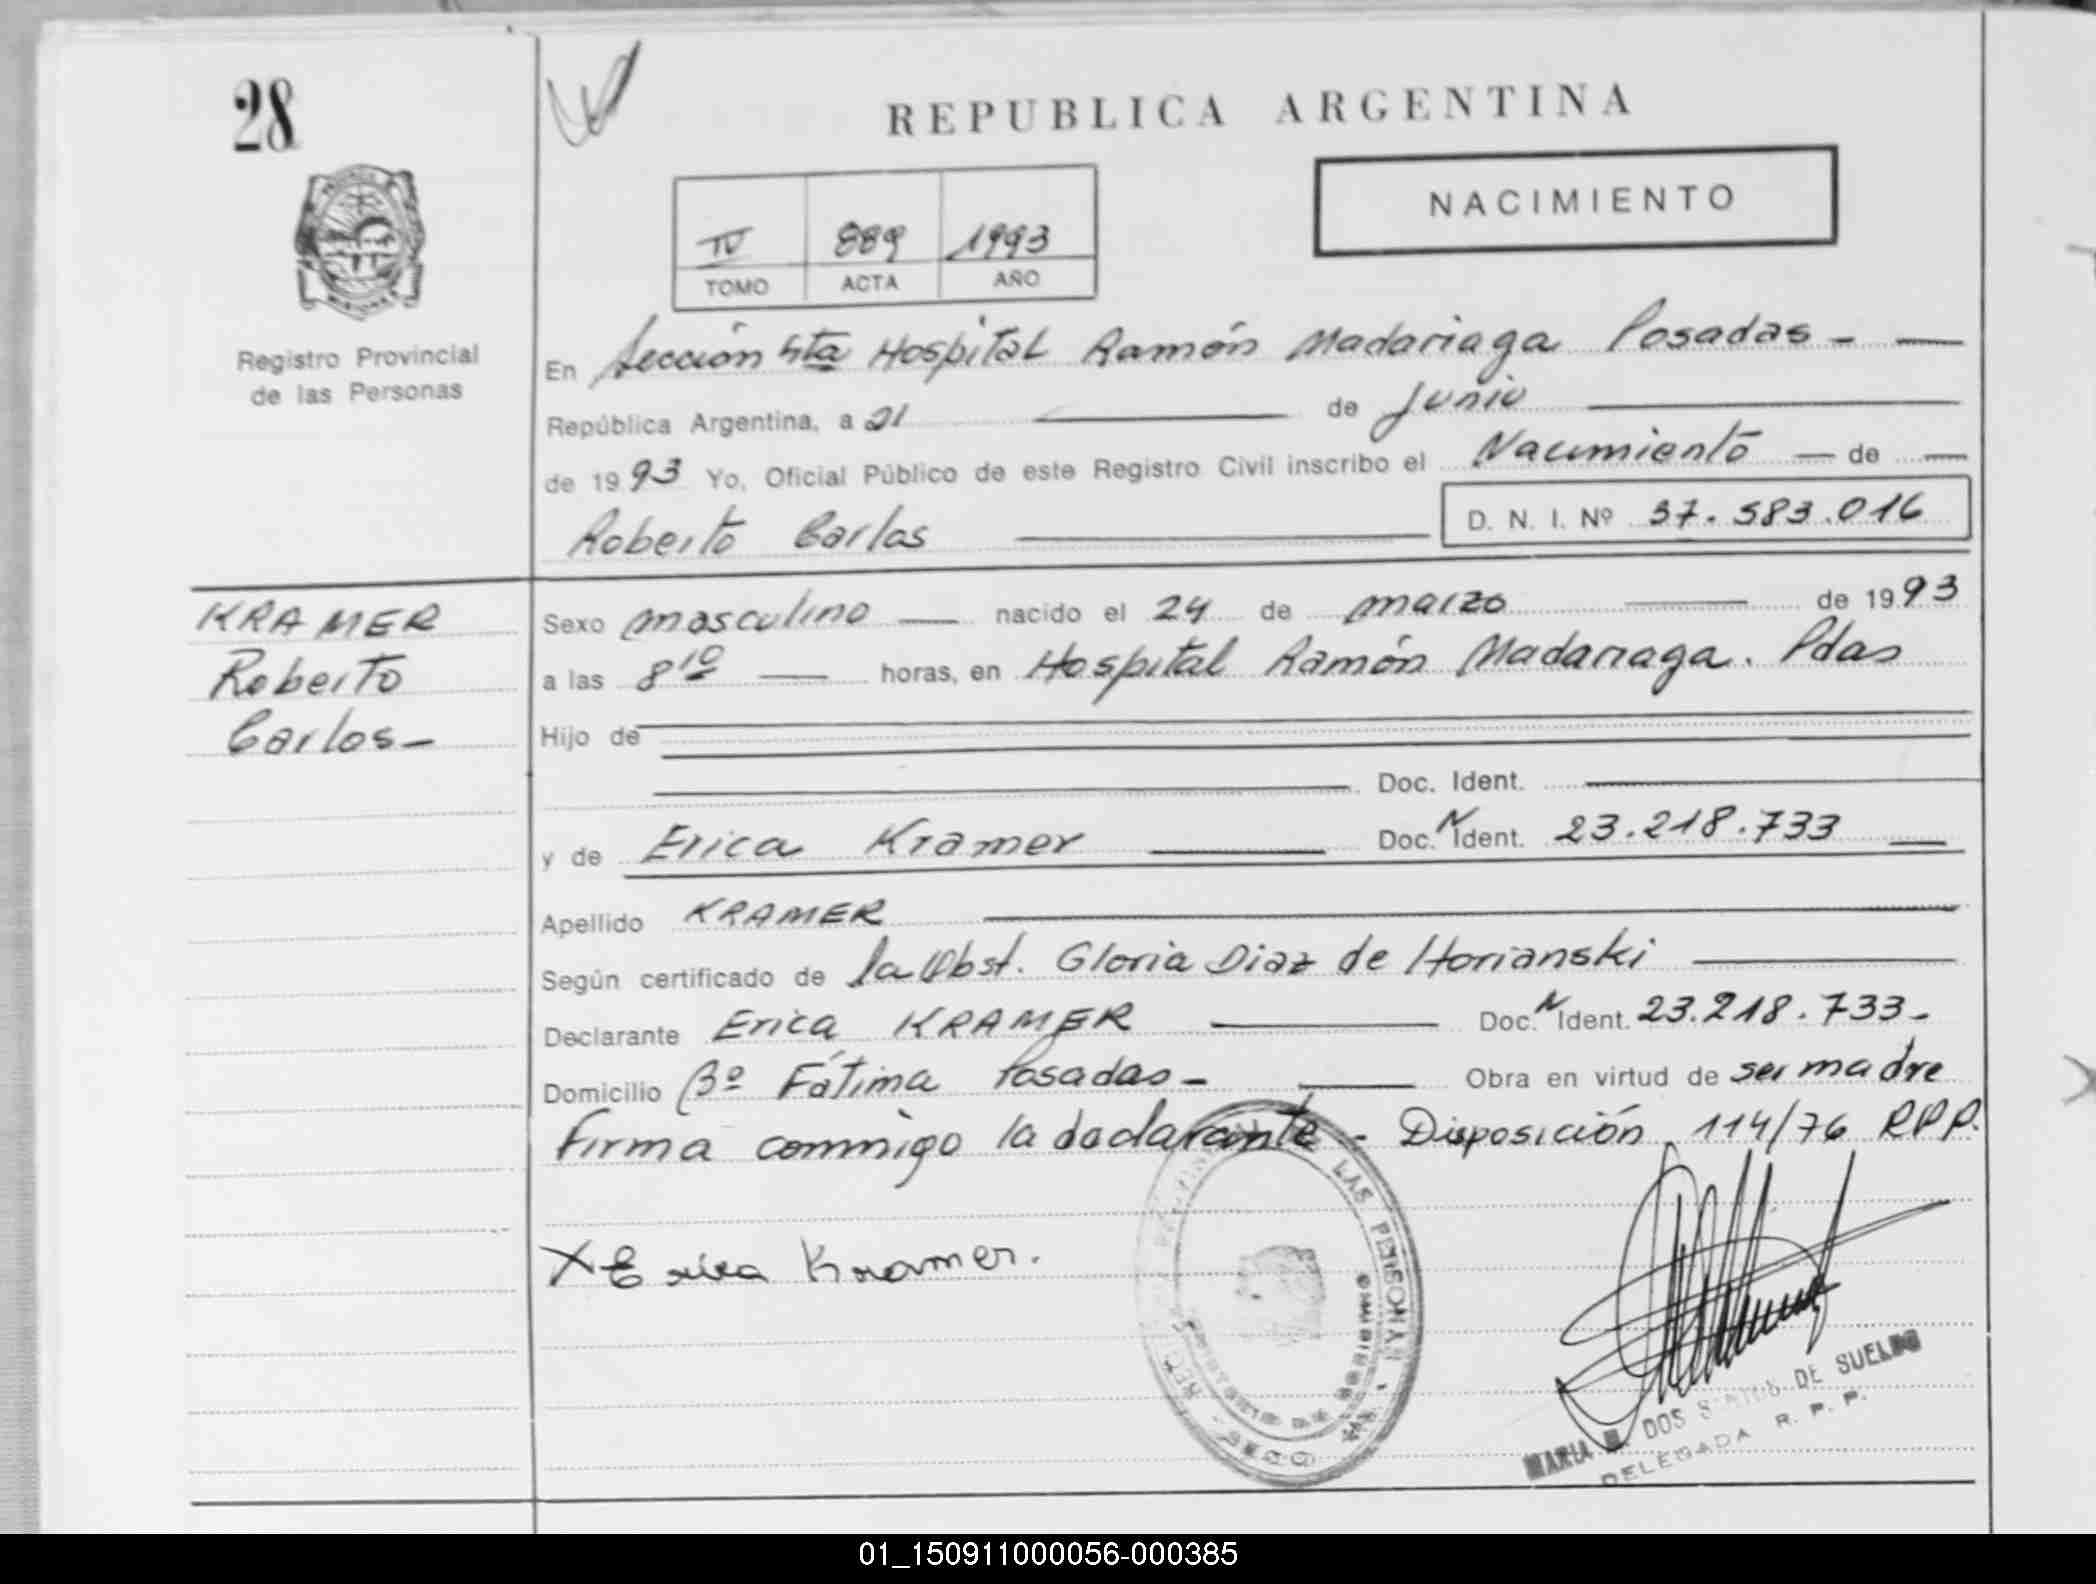 28
REPUBLICA ARGENTINA
NACIMIENTO
IV 889 1993
TOMO ACTA AÑO
Registro Provincial
de las Personas
En Sección 4ta Hospital Ramón Madariaga Posadas -
República Argentina, a 21 de Junio
de 1993 Yo, Oficial Público de este Registro Civil inscribo el Nacimiento de
Roberto Carlos D. N. I. Nº 37.583.016
KRAMER
Roberto
Carlos -
Sexo masculino nacido el 24 de marzo de 1993
a las 8 10 horas, en Hospital Ramón Madariaga. Pdas
Hijo de
Doc. Ident.
y de Erica Kramer Doc. N Ident. 23.218.733
Apellido KRAMER
Según certificado de la Obst. Gloria Diaz de Horianski
Declarante Erica KRAMER Doc. N Ident. 23.218.733-
Domicilio Bº Fátima Posadas - Obra en virtud de ser madre
Firma conmigo la declarante - Disposición 114/76 RPP.
X Erica Kramer.
LAS PERSONAS
MARIA DOS SANTOS DE SUELDO
DELEGADA R. P. P.
01_150911000056-000385